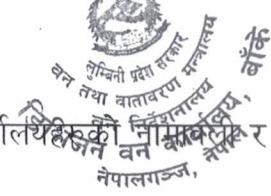 लुम्बिनी प्रदेश सरकार
वन तथा वातावरण मन्त्रालय
वन निर्देशनालय
डिभिजन वन कार्यालय, बाँके
नेपालगञ्ज, नेपाल
र्लयहरुको नामावली र